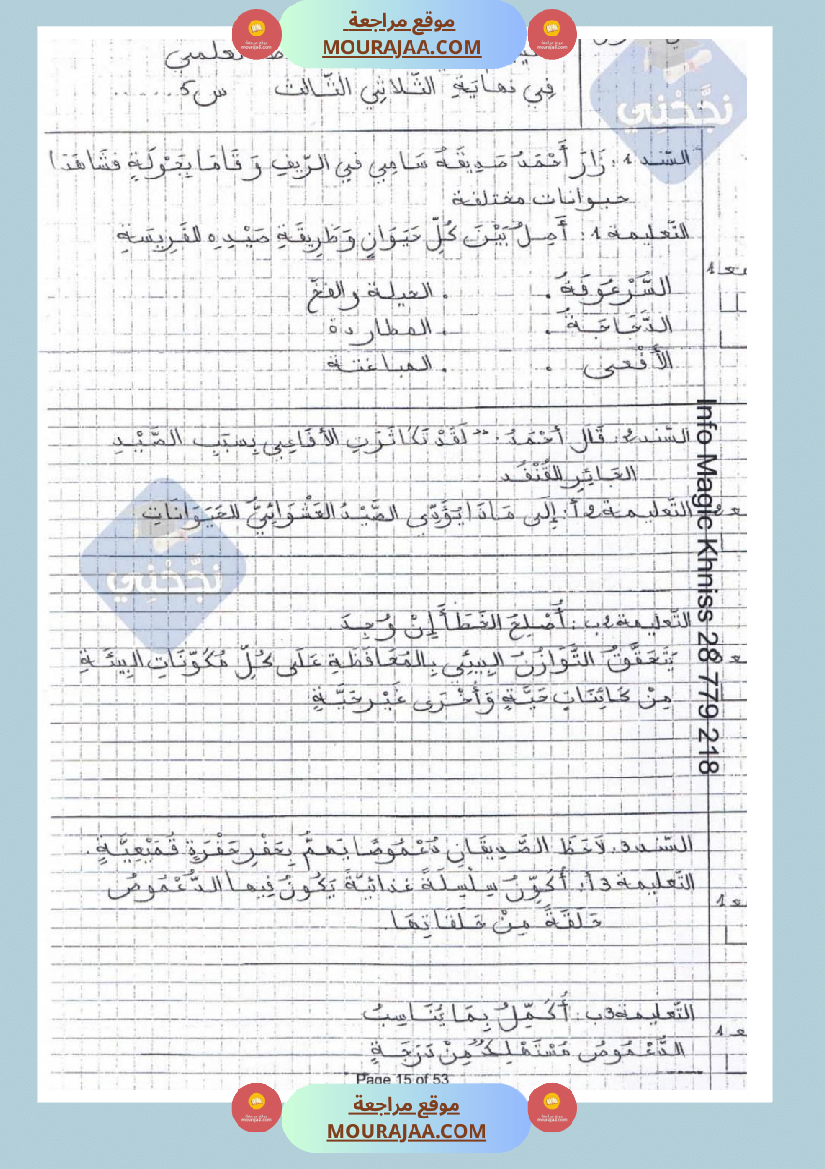 موقع مراجعة
MOURAJAA.COM
في نهاية الثّلاثي الثّالث س5
نجّحني
السّند 1: زَارَ أَحْمَدُ صَدِيقَهُ سَامِي فِي الرّيفِ وَ قَامَا بِجَوْلَةٍ فشَاهَدَا
حيوانات مختلفة
التّعليمة 1: أَصِلُ بَيْنَ كُلِّ حَيَوَانٍ وَطَرِيقَةِ صَيْدِهِ للفَرِيسَةِ
مع 1
السُّرْعُوفَةُ . . الحيلة والفخّ
الدَّجَاجَةُ . . المطاردة
الأَفْعى . . المباغتة
السّند 2: قَالَ أَحْمَدُ: "لَقَدْ تَكَاثَرَتِ الأفَاعِي بِسَبَبِ الصَّيْدِ
الجَائِرِ للقُنْفُد
التّعليمة 2أ: إِلَى مَاذَا يُؤَدّي الصَّيْدُ العَشْوَائِيُّ للحَيَوَانَاتِ
نجّحني
التّعليمة 2ب: أُصْلِحُ الخَطَأَ إِنْ وُجِدَ
يَتَحَقَّقُ التَّوَازُنُ البِيئِي بِالمُحَافَظَةِ عَلَى كُلِّ مُكَوِّنَاتِ البِيئَةِ
مِنْ كَائِنَاتٍ حَيَّةٍ وَأُخْرَى غَيْرِ حَيَّةٍ
Info Magic Khniss 28 779 218
السّند 3: لَاحَظَ الصَّدِيقَانِ دُعْمُوصًا يَهمُّ بِحَفْرِ حُفْرَةٍ قُمْعِيَّةٍ.
التّعليمة 3أ: أُكَوِّنُ سِلْسِلَةً غذائيّةً يَكُونُ فِيهَا الدُّعْمُوصُ
حَلَقَةً مِنْ حَلَقَاتِهَا
مع 1
التّعليمة 3ب: أُكَمِّلُ بِمَا يُنَاسِبُ
مع 1
الدُّعْمُوصُ مُسْتَهْلِكٌ مِنْ دَرَجَةٍ
Page 15 of 53
موقع مراجعة
MOURAJAA.COM